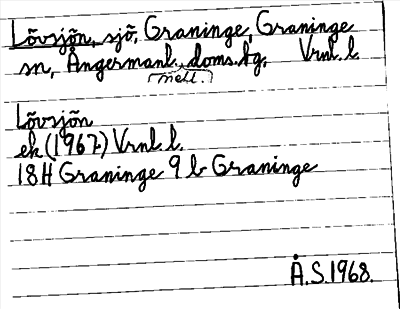 Lövsjön, sjö, Graninge, Graninge
sn, Ångermanl. doms.kg. Vrnl. l.
mell.
Lövsjön
ek (1967) Vrnl. l.
18H Graninge 9 b Graninge
Å.S.1968.